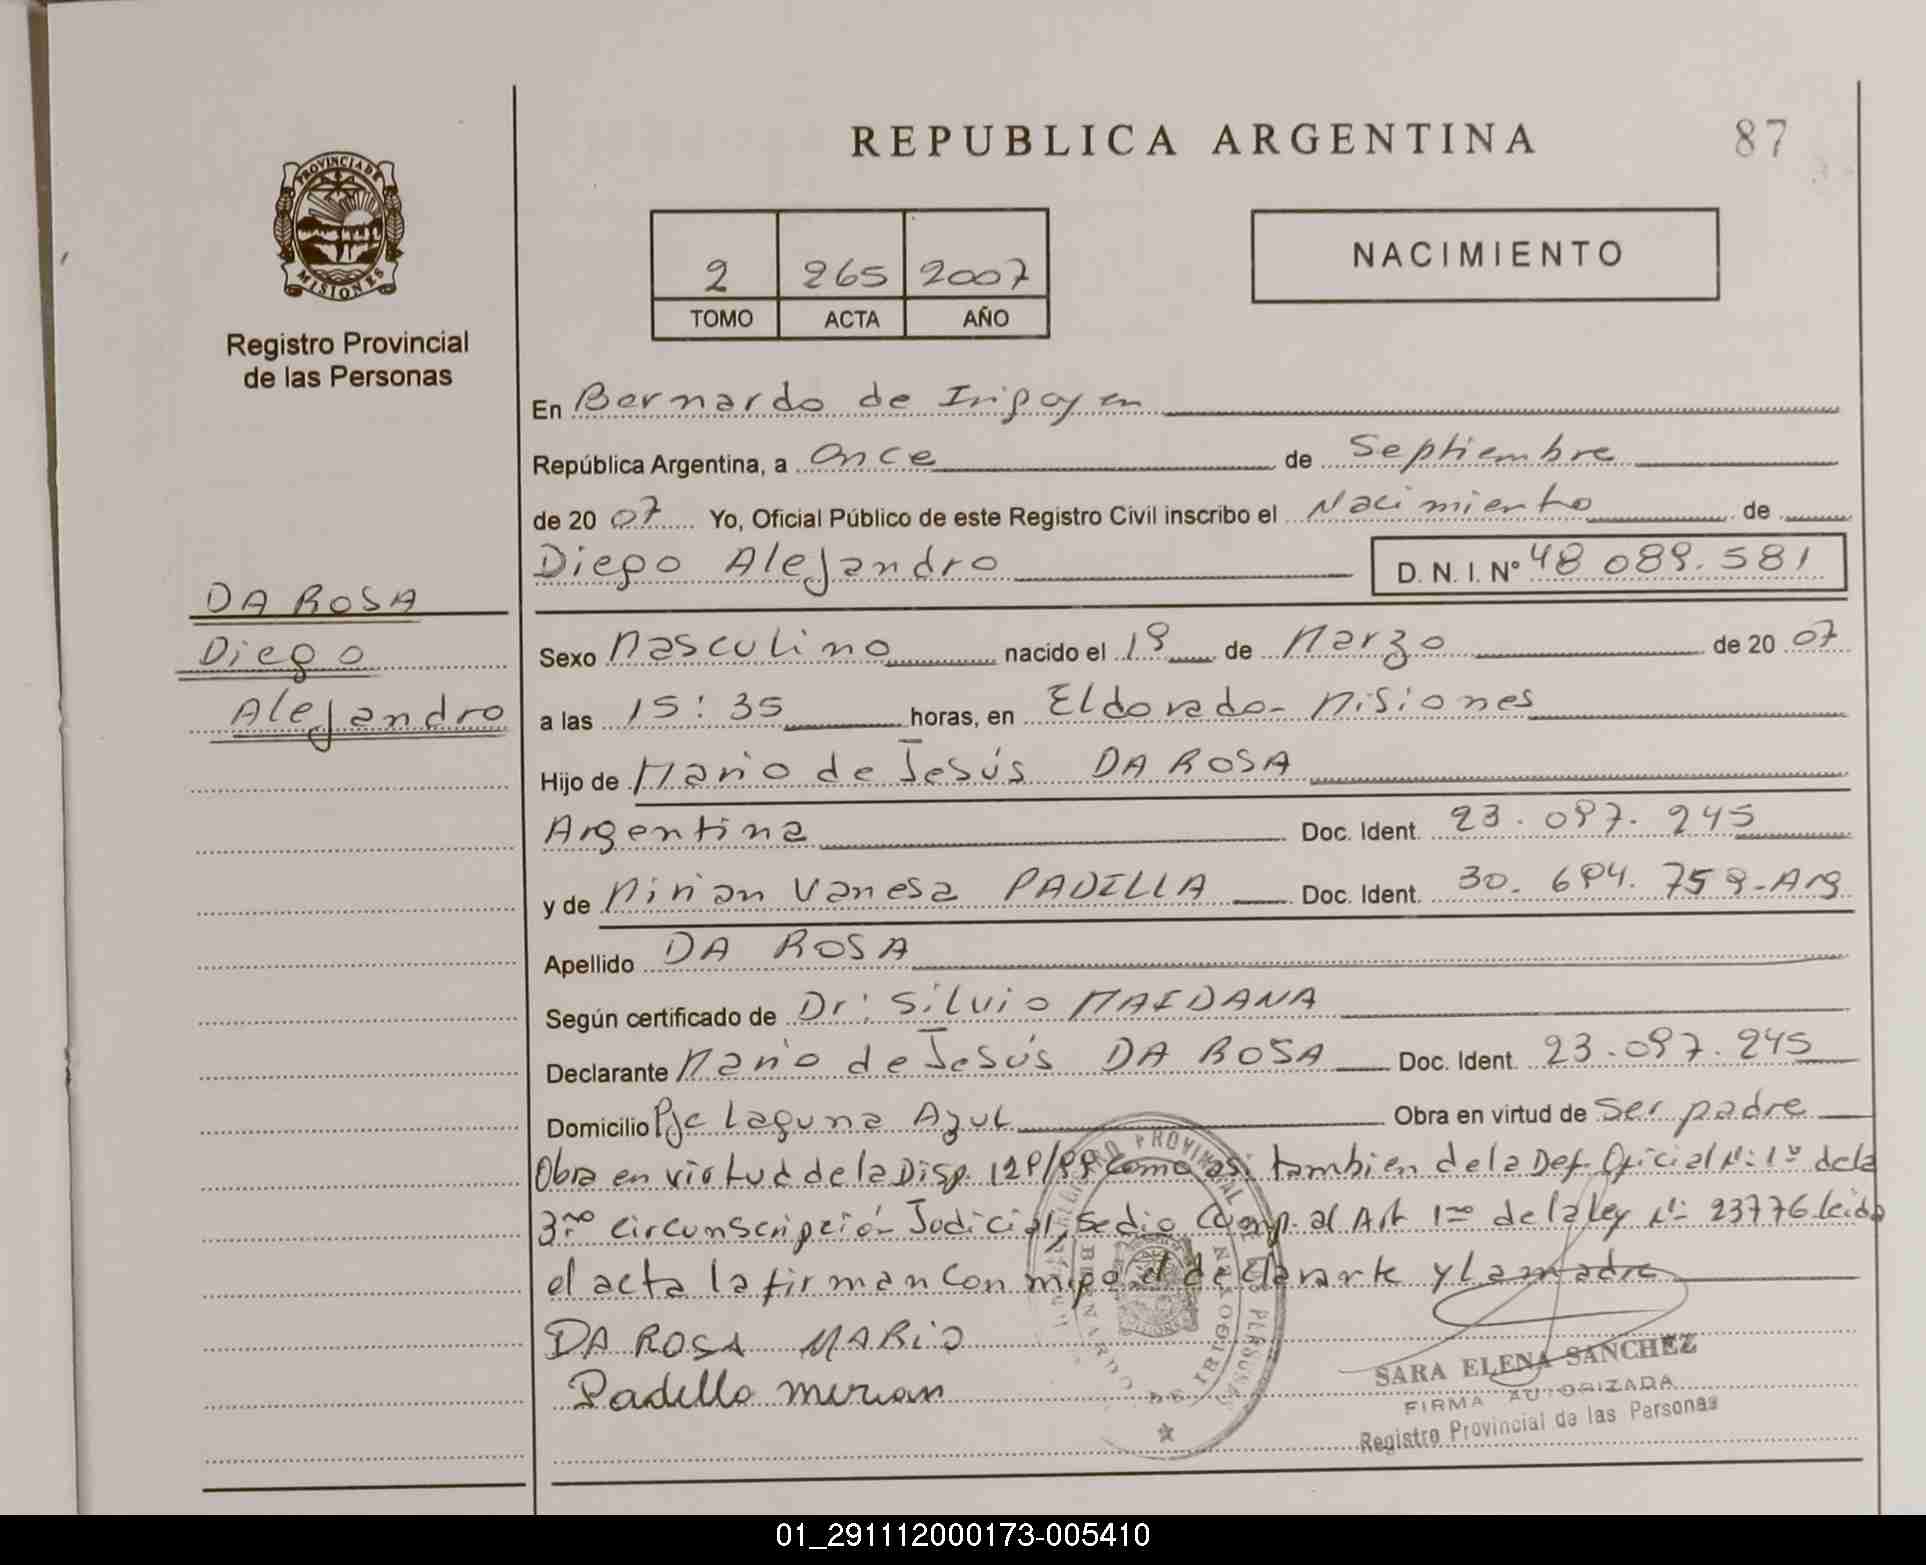 REPUBLICA ARGENTINA
87
PROVINCIA DE
MISIONES
Registro Provincial
de las Personas
2 265 2007
TOMO ACTA AÑO
NACIMIENTO
En Bernardo de Irigoyen
República Argentina, a Once de Septiembre
de 20 07 Yo, Oficial Público de este Registro Civil inscribo el Nacimiento de
Diego Alejandro D. N. I. Nº 48 089.581
DA ROSA
Diego
Alejandro
Sexo Masculino nacido el 19 de Marzo de 20 07
a las 15:35 horas, en Eldorado- Misiones
Hijo de Mario de Jesús DA ROSA
Argentina Doc. Ident. 23.097.245
y de Mirian Vanesa PADILLA Doc. Ident. 30.694.759-Arg
Apellido DA ROSA
Según certificado de Dr: Silvio MAIDANA
Declarante Mario de Jesús DA ROSA Doc. Ident. 23.097.245
Domicilio Pje Laguna Azul Obra en virtud de Ser padre
Obra en virtud de la Disp. 129/99 como asi tambien de la Def. Oficial Nº: 1º de la
3ra circunscripción Judicial, se dio Cump. al Art 1ro de la Ley Nº 23776 leida
el acta la firman con migo el declarante y la madre
DA ROSA MARIO
Padilla mirian
SARA ELENA SANCHEZ
FIRMA AUTORIZADA
Registro Provincial de las Personas
01_291112000173-005410